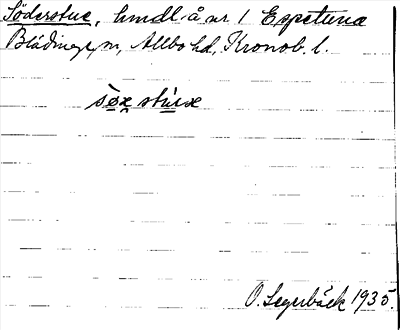 Söderstue, hmdl. å nr 1 Espetuna
Blädinge sn, Allbo hd, Kronob. l.
O. Segerbäck 1935.